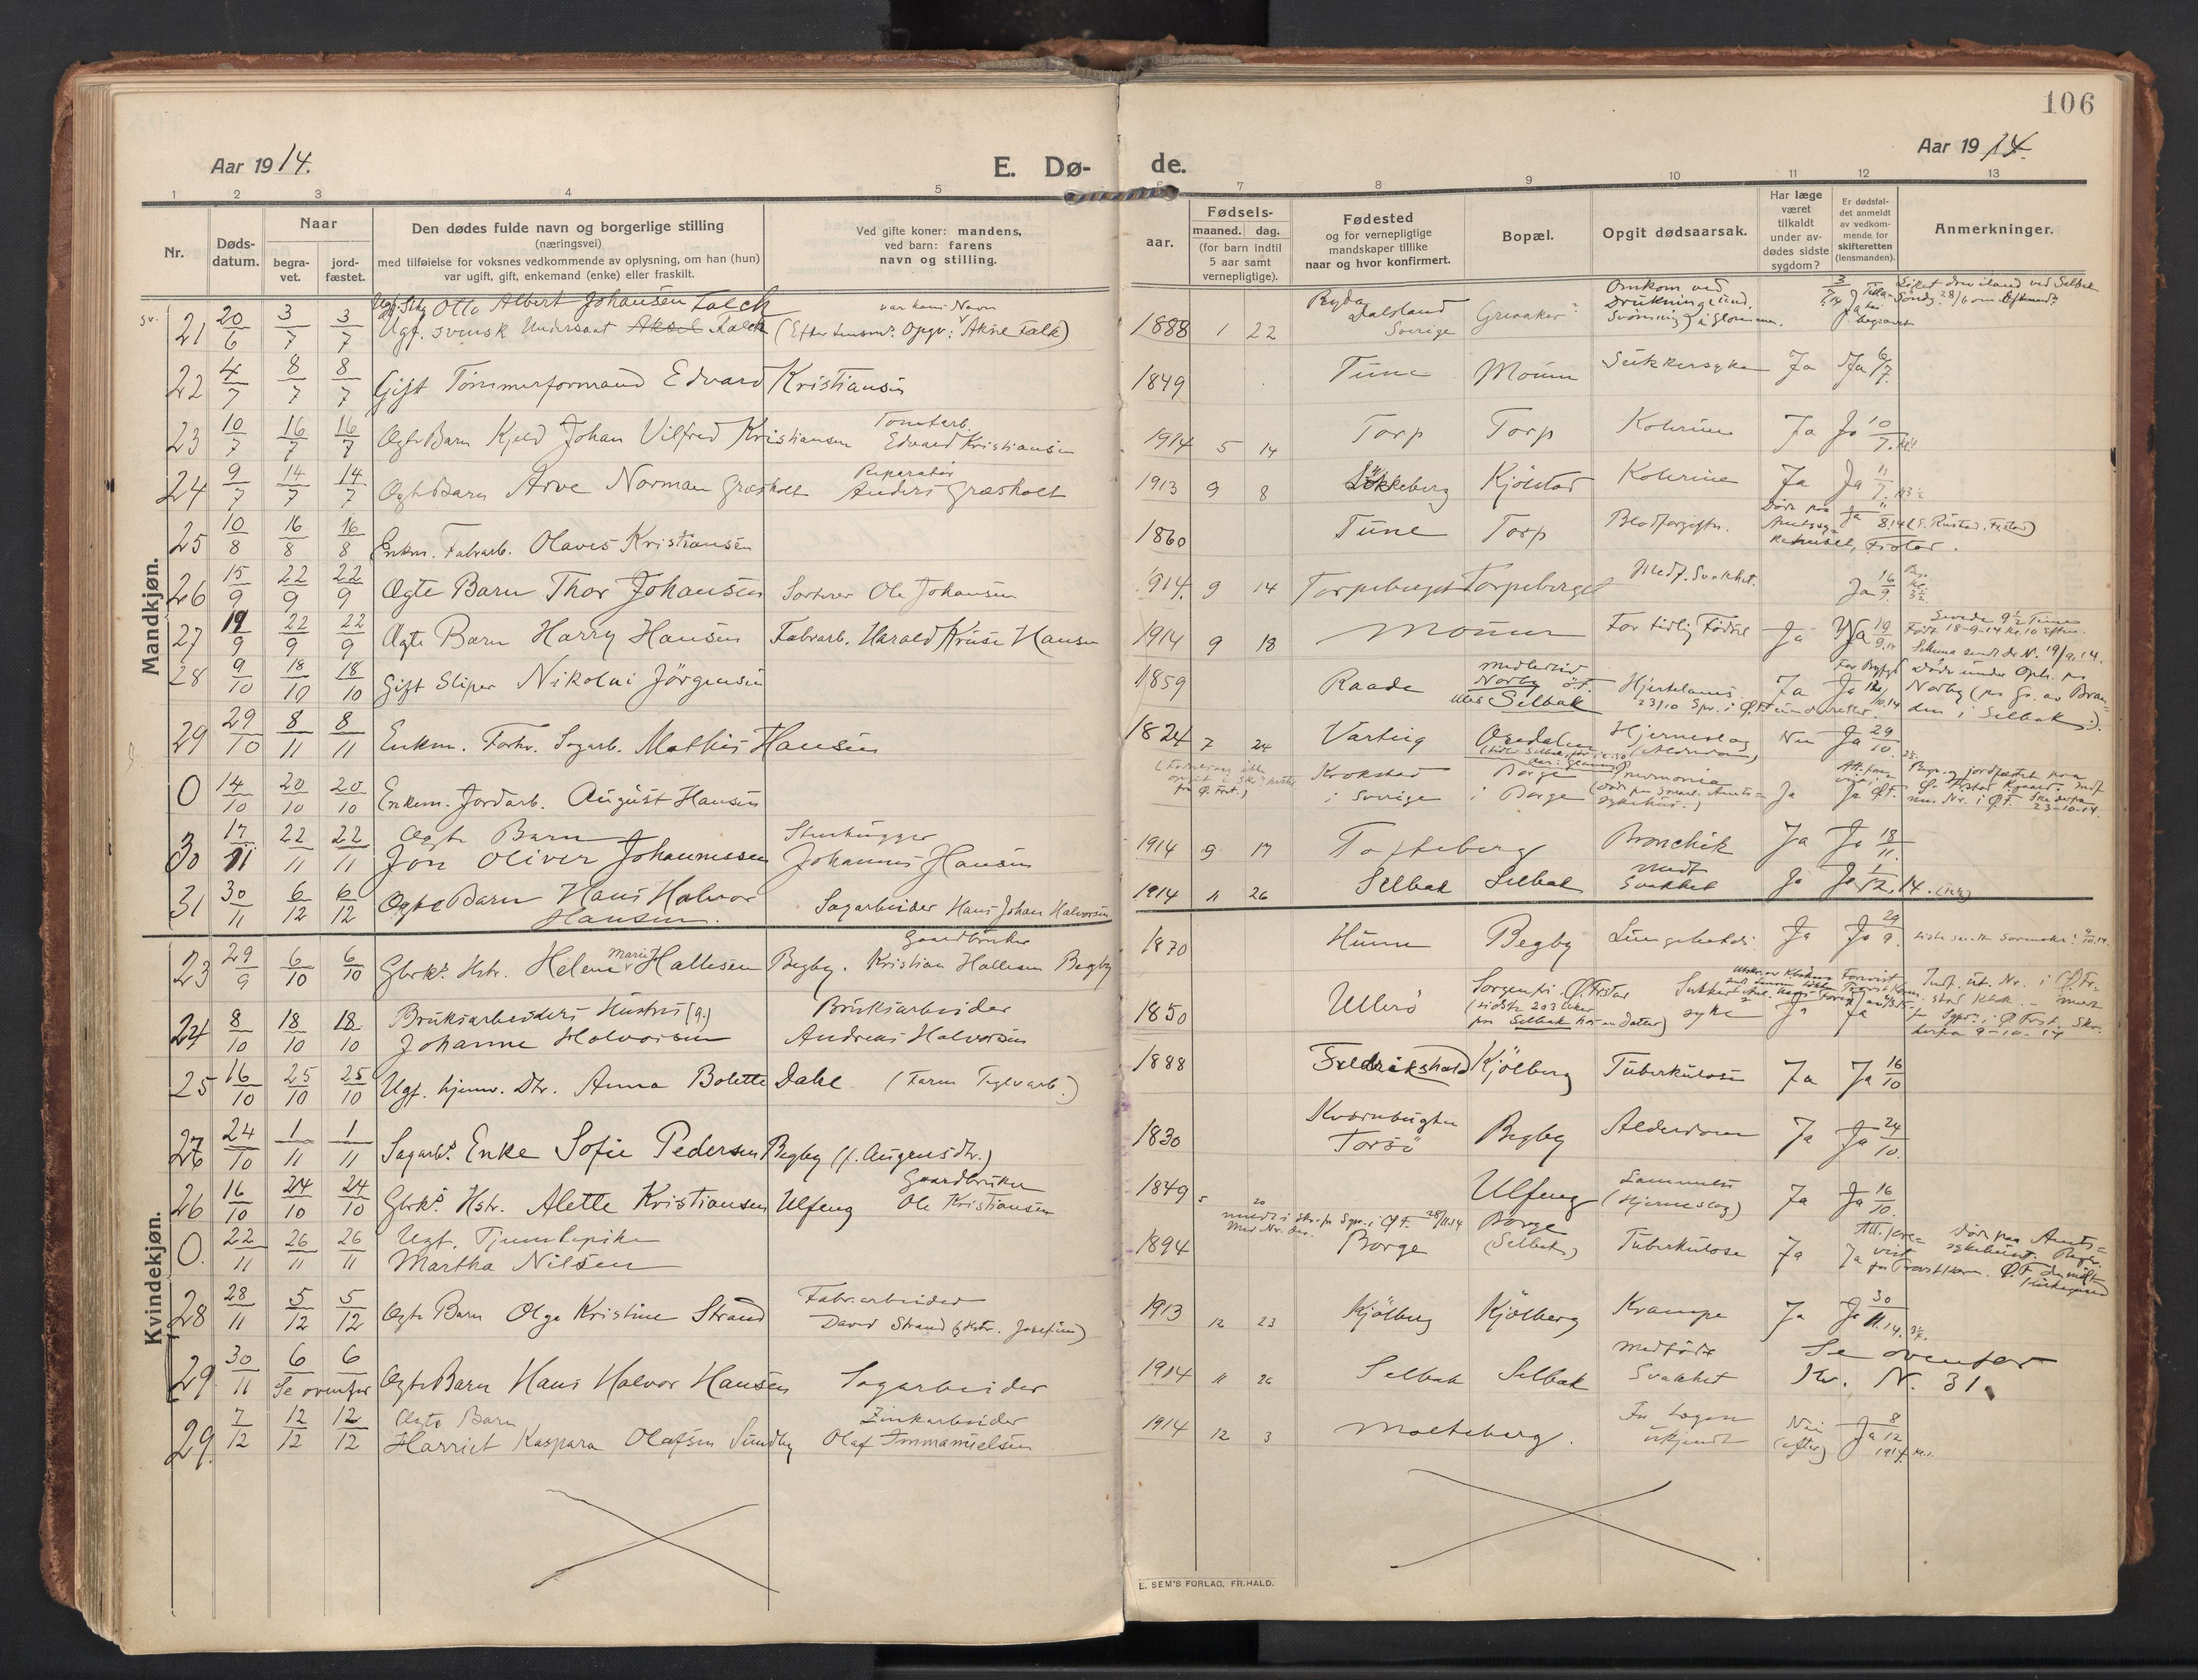 106
Aar 1914.
E. Dø-
de.
Aar 1914.
1 2 3 4 5 6 7 8 9 10 11 12 13
Nr.
Døds-
datum.
Naar
begra-
vet.
jord-
fæstet.
Den dødes fulde navn og borgerlige stilling
(næringsvei)
med tilføielse for voksnes vedkommende av oplysning, om han (hun)
var ugift, gift, enkemand (enke) eller fraskilt.
Ved gifte koner: mandens,
ved barn: farens
navn og stilling.
aar.
Fødsels-
maaned. dag.
(for barn indtil
5 aar samt
vernepligtige).
Fødested
og for vernepligtige
mandskaper tillike
naar og hvor konfirmert.
Bopæl.
Opgit dødsaarsak.
Har læge
været
tilkaldt
under av-
dødes sidste
sygdom?
Er dødsfal-
det anmeldt
av vedkom-
mende for
skifteretten
(lensmanden).
Anmerkninger.
Mandkjøn.
Otto Albert Johansen Falck
21 20/6 3/7 3/7 Ugf. svensk Undersaat Aksel Falck (Efter Lensm. Opgv. Aksel Falk) 1888 1 22 Dalsland
Sverige
Omkom ved
Drukning
22 4/7 8/7 8/7 Gift Tømmerformand Edvard Kristiansen 1849 Tune Moum Sukkersyke Ja Ja 6/7
23 10/7 16/7 16/7 Ægte Barn Kjeld Johan Vilfred Kristiansen Tomtarb.
Edvard Kristiansen 1914 5 14 Torp Torp Kolerine Ja Ja 10/7
24 9/7 14/7 14/7 Ægte Barn Arve Norman Græsholt Reparatør
Anders Græsholt 1913 9 8 Løkkeberg Kjølstad Kolerine Ja Ja 11/7
25 10/8 16/8 16/8 Enkm. Fabrarb. Olaves Kristiansen 1860 Tune Torp Blodforgiftn. Døde paa
Ja 11/8 14
26 15/9 22/9 22/9 Ægte Barn Thor Johansen Sorterer Ole Johansen 1914 9 14 Torpeberget Torpeberget Medf. Svakhet. Ja 16/9
27 19/9 22/9 22/9 Ægte Barn Harry Hansen Fabrarb. Harald Kruse Hansen 1914 9 18 Moum For tidlig Fødsel Ja Ja 19/9 14
Levede 9½ Time
Født 18-9-14 Kl. 10 Eftm.
28 9/10 18/10 18/10 Gift Sliper Nikolai Jørgensen 1859 Raade
Norby
Selbak
Hjertelams. Ja Ja
Døde under Oph. på
Norby
29 29/10 8/11 8/11 Enkm. Forhv. Sagarb. Mathis Hansen 1824 7 24 Varteig Hjerneslag
(Alderdom) Nei Ja 29/10
0 14/10 20/10 20/10 Enkm. Jordarb. August Hansen Krokstad
i Sverige Borge
i Borge Pneumonia
Ja Ja
30 17/11 22/11 22/11 Ægte Barn
Jon Oliver Johannessen Stenhugger
Johannes Hansen 1914 9 17 Torpeberg Bronchit Ja Ja 18/11
31 30/11 6/12 6/12 Ægte Barn Hans Halvor
Hansen. Sagarbeider Hans Johan Halvorsen 1914 11 26 Selbak Selbak Medf.
Svakhet Ja Ja 1/12 14.
Kvindekjøn.
23 29/9 6/10 6/10 Gbrks. Hstr. Helene Marie Hallesen Begby. Gaardbruker
Kristian Hallesen Begby 1870 Hunn Begby Lungebetds. Ja Ja 29/9
24 8/10 18/10 18/10 Bruksarbeiders Hustru (g.)
Johanne Halvorsen Bruksarbeider
Andreas Halvorsen 1850 Ullerø Sorgenfri Ø. Frstad
(sidste 2 a 3 Uker
paa Selbak hos en Datter) Sukker-
syke Ja Ja
25 16/10 25/10 25/10 Ugf. hjemv. Dtr. Anna Bolette Dahl (Faren Teglvarb.) 1888 Fredrikshald Kjølberg Tuberkulose Ja Ja 16/10
27 24/10 1/11 1/11 Sagarbs. Enke Sofie Pedersen Begby 1830 Kvernbugten
Torsø Begby Alderdom Ja Ja 24/10
26 16/10 24/10 24/10 Gbrks. Hstr. Alette Kristiansen Ulfeng Gaardbruker
Ole Kristiansen 1849 5 20 Ulfeng Lammelse
(Hjerneslag) Ja Ja 16/10
0. 22/11 26/11 26/11 Ugf. Tjenestepike
Martha Nilsen 1894 Borge Borge
(Selbak) Tuberkulose Ja Ja
Død paa Amts-
sykehuset.
28 28/11 5/12 5/12 Ægte Barn Olga Kristine Strand Fabr.arbeider
David Strand (Hstr. Josefine) 1913 12 23 Kjølberg Kjølberg Krampe Ja Ja 30/11.14.
29 30/11 6 6
Se ovenfor Ægte Barn Hans Halvor Hansen Sagarbeider 1914 11 26 Selbak Selbak medfødt
Svakhet Se ovenfor
N. 31.
29. 7/12 12/12 12/12 Ægte Barn
Harriet Kaspara Olafsen Sundby Zinkarbeider
Olaf Immanuelsen 1914 12 3 Molteberg. For Lægen
ukjendt Nei
(efter) Ja 8/12
1914
E. SEM'S FORLAG, FR.HALD.